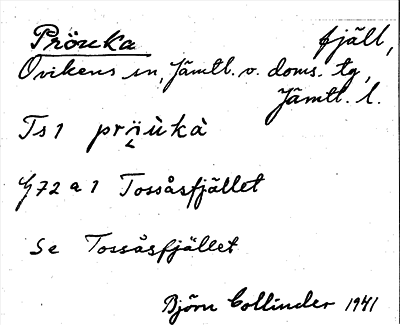 Pröuka fjäll,
Ovikens sn, Jämtl. v. doms. tg,
Jämtl. l.
Ts 1 pröùkà
G72 a 1 Tossåsfjället
Se Tossåsfjället
Björn Collinder 1941